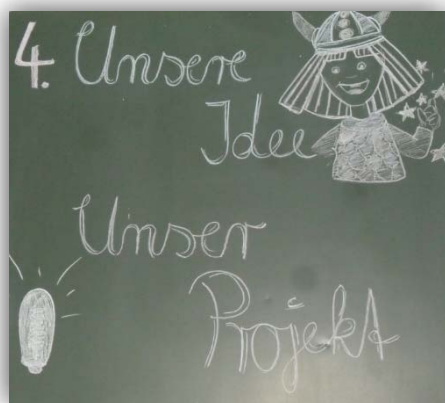 4. Unsere
Idee
Unser
Projekt